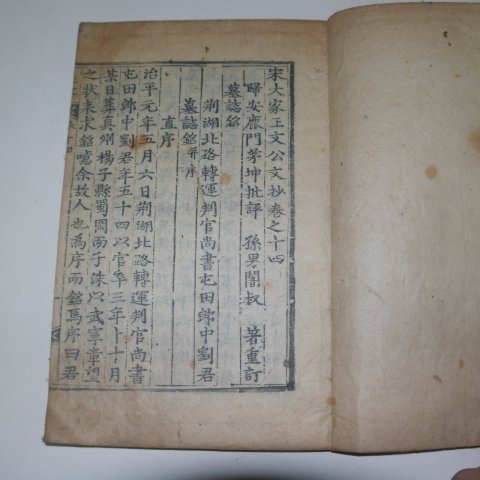 宋大家王文公文抄卷之十四
歸安鹿門茅坤批評 孫男闇叔 著重訂
墓誌銘
荊湖北路轉運判官尚書屯田郎中劉君
墓誌銘并序
直序
治平元年五月六日荊湖北路轉運判官尚書
屯田郎中劉君年五十四以官卒三年十月
某日葬真州楊子縣蜀岡而子洙以武寧章望
之狀來求銘噫余故人也為序而銘焉序曰君